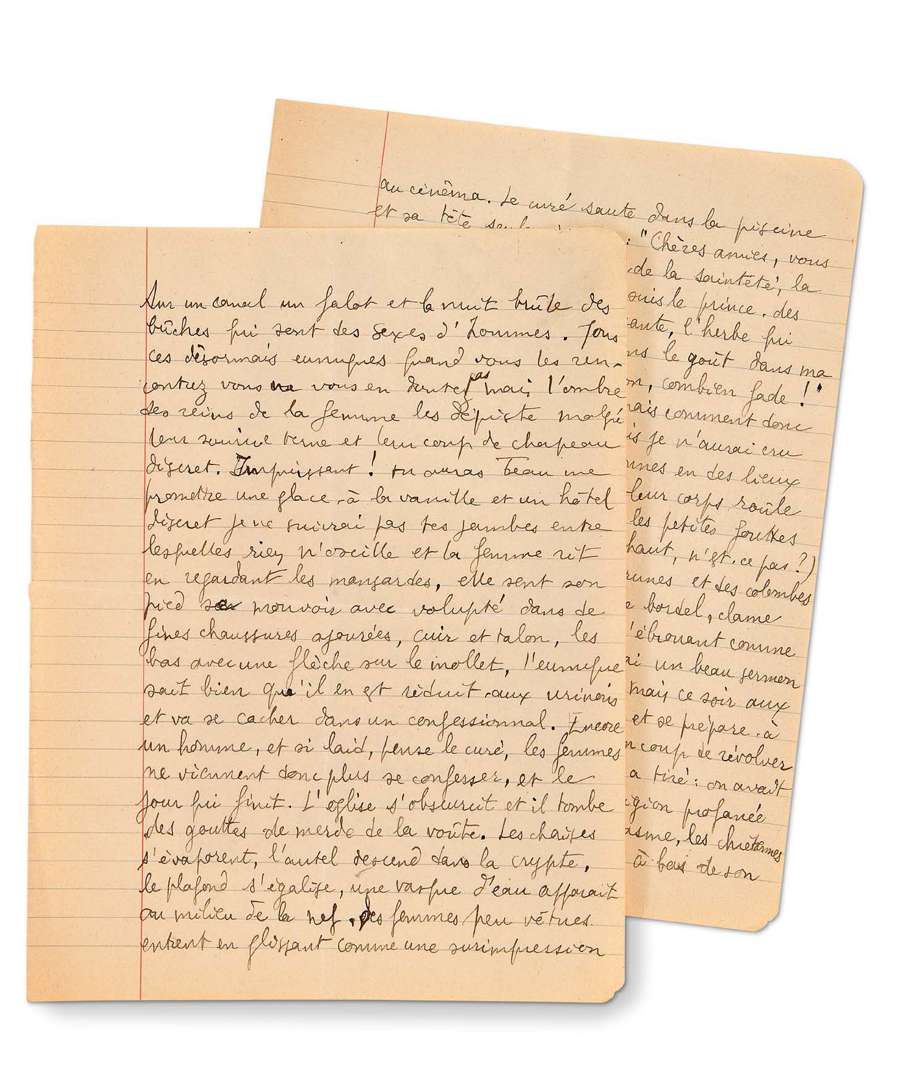 Sur un canal un falot et la nuit brûle des
bûches qui sont des sexes d'hommes. Tous
ces désormais eunuques quand vous les ren-
contrez vous vous en doutez pas mais l'ombre
des reins de la femme les dépiste malgré
leur sourire terne et leur coup de chapeau
discret. Impuissant ! tu auras beau me
promettre une glace à la vanille et un hôtel
discret je ne suivrai pas tes jambes entre
lesquelles rien n'oscille et la femme rit
en regardant les mansardes, elle sent son
pied se mouvoir avec volupté dans de
fines chaussures ajourées, cuir et talon, les
bas avec une flèche sur le mollet, l'eunuque
sait bien qu'il en est réduit aux urinoirs
et va se cacher dans un confessionnal. Encore
un homme, et si laid, pense le curé, les femmes
ne viennent donc plus se confesser, et le
jour qui finit. L'église s'obscurcit et il tombe
des gouttes de merde de la voûte. Les chaises
s'évaporent, l'autel descend dans la crypte,
le plafond s'égalise, une vasque d'eau apparait
au milieu de la nef, des femmes peu vêtues
entrent en glissant comme une surimpression
au cinéma. Le curé saute dans la piscine
et sa tête : "Chères amies, vous
de la sainteté, la
suis le prince des
l'herbe qui
le goût dans ma
combien fade !"
mais comment donc
je n'aurai cru
en des lieux
leur corps roule
les petites gouttes
haut, n'est-ce pas ?)
et des colombes
bordel, clame
s'ébrouant comme
un beau sermon
mais ce soir aux
et se prépare à
coup de révolver
a tiré : on avait
profanée
les chrétiennes
à bas de son